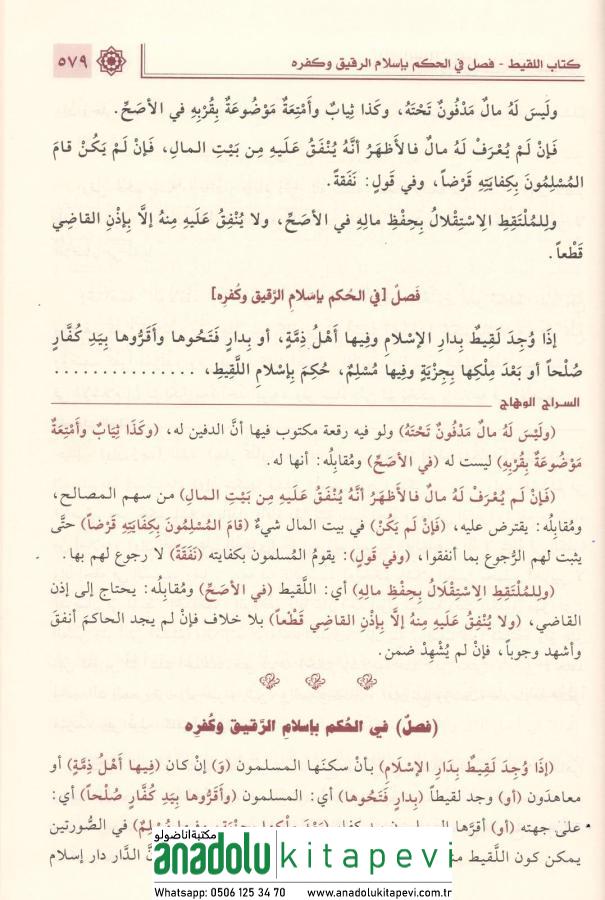 كتاب اللقيط - فصل في الحكم بإسلام الرقيق وكفره
٥٧٩
ولَيسَ لَهُ مالٌ مَدْفُونٌ تَحْتَهُ، وكَذا ثِيابٌ وأَمْتِعَةٌ مَوْضُوعَةٌ بِقُرْبِهِ في الأصَحِّ.
فَإنْ لَمْ يُعرَفْ لَهُ مالٌ فالأظهَرُ أنَّهُ يُنْفَقُ عَلَيهِ مِن بَيْتِ المالِ، فَإنْ لَمْ يَكُنْ قامَ
المُسْلِمُونَ بِكِفايَتِهِ قَرْضاً، وفي قَولٍ: نَفَقَةً.
وللمُلْتَقِطِ الاسْتِقْلالُ بِحِفْظِ مالِهِ في الأصَحِّ، ولا يُنْفِقُ عَلَيهِ مِنهُ إلَّا بِإذْنِ القاضِي
قَطْعاً.
فَصلٌ [في الحُكمِ بإسْلامِ الرَّقيقِ وكُفرِه]
إذَا وُجِدَ لَقِيطٌ بِدَارِ الإسْلامِ وفِيها أَهْلُ ذِمَّةٍ، أو بِدارٍ فَتَحُوها وأَقَرُّوها بِيَدِ كُفَّارٍ
صُلْحاً أو بَعْدَ مِلْكِها بِجِزْيَةٍ وفِيها مُسْلِمٌ، حُكِمَ بِإسْلامِ اللَّقِيطِ، ...............
السراج الوهاج
(ولَيْسَ لَهُ مالٌ مَدْفُونٌ تَحْتَهُ) ولو فيه رقعة مكتوب فيها أنَّ الدفين له، (وكَذَا ثِيَابٌ وأَمْتِعَةٌ
مَوْضُوعَةٌ بِقُرْبِهِ) ليست له (في الأصَحِّ) ومُقابِلُه: أنها له.
(فَإنْ لَم يُعْرَفْ لَهُ مالٌ فَالأظْهَرُ أنَّهُ يُنْفَقُ عَلَيهِ مِنْ بَيْتِ المالِ) من سهم المصالح،
ومُقابِلُه: يقترض عليه، (فَإنْ لَم يَكُنْ) في بيت المال شيءٌ (قامَ المُسْلِمُونَ بِكِفَايَتِهِ قَرْضاً) حتَّى
يثبت لهم الرُّجوع بما أنفقوا، (وفي قَولٍ): يقومُ المُسلمون بكفايته (نَفَقَةً) لا رجوع لهم بها.
(ولِلمُلْتَقِطِ الاسْتِقْلَالُ بِحِفْظِ مالِهِ) أي: اللَّقيط (في الأصَحِّ) ومُقابِلُه: يحتاج إلى إذن
القاضي، (ولا يُنْفِقُ عَلَيهِ مِنهُ إلَّا بِإذْنِ القاضِي قَطْعاً) بلا خلاف فإنْ لم يجد الحاكمَ أنفقَ
وأشهد وجوباً، فإنْ لم يُشْهِدْ ضمن.
(فصلٌ) في الحُكمِ بإسلامِ الرَّقيقِ وكُفرِه
(إذَا وُجِدَ لَقِيطٌ بِدَارِ الإسْلَامِ) بأنْ سكنَها المسلمون (وَ) إنْ كان (فِيها أَهْلُ ذِمَّةٍ) أو
معاهَدون (أو) وجد لقيطاً (بِدارٍ فَتَحُوها) أي: المسلمون (وأَقَرُّوها بِيَدِ كُفَّارٍ صُلْحاً) أي:
على جهته (أو) أقرَّها في الصُّورتين
يمكن كون اللَّقيط الدَّار دار إسلام
مكتبة اناضولو
anadolu kitapevi
Whatsapp: 0506 125 34 70 www.anadolukitapevi.com.tr